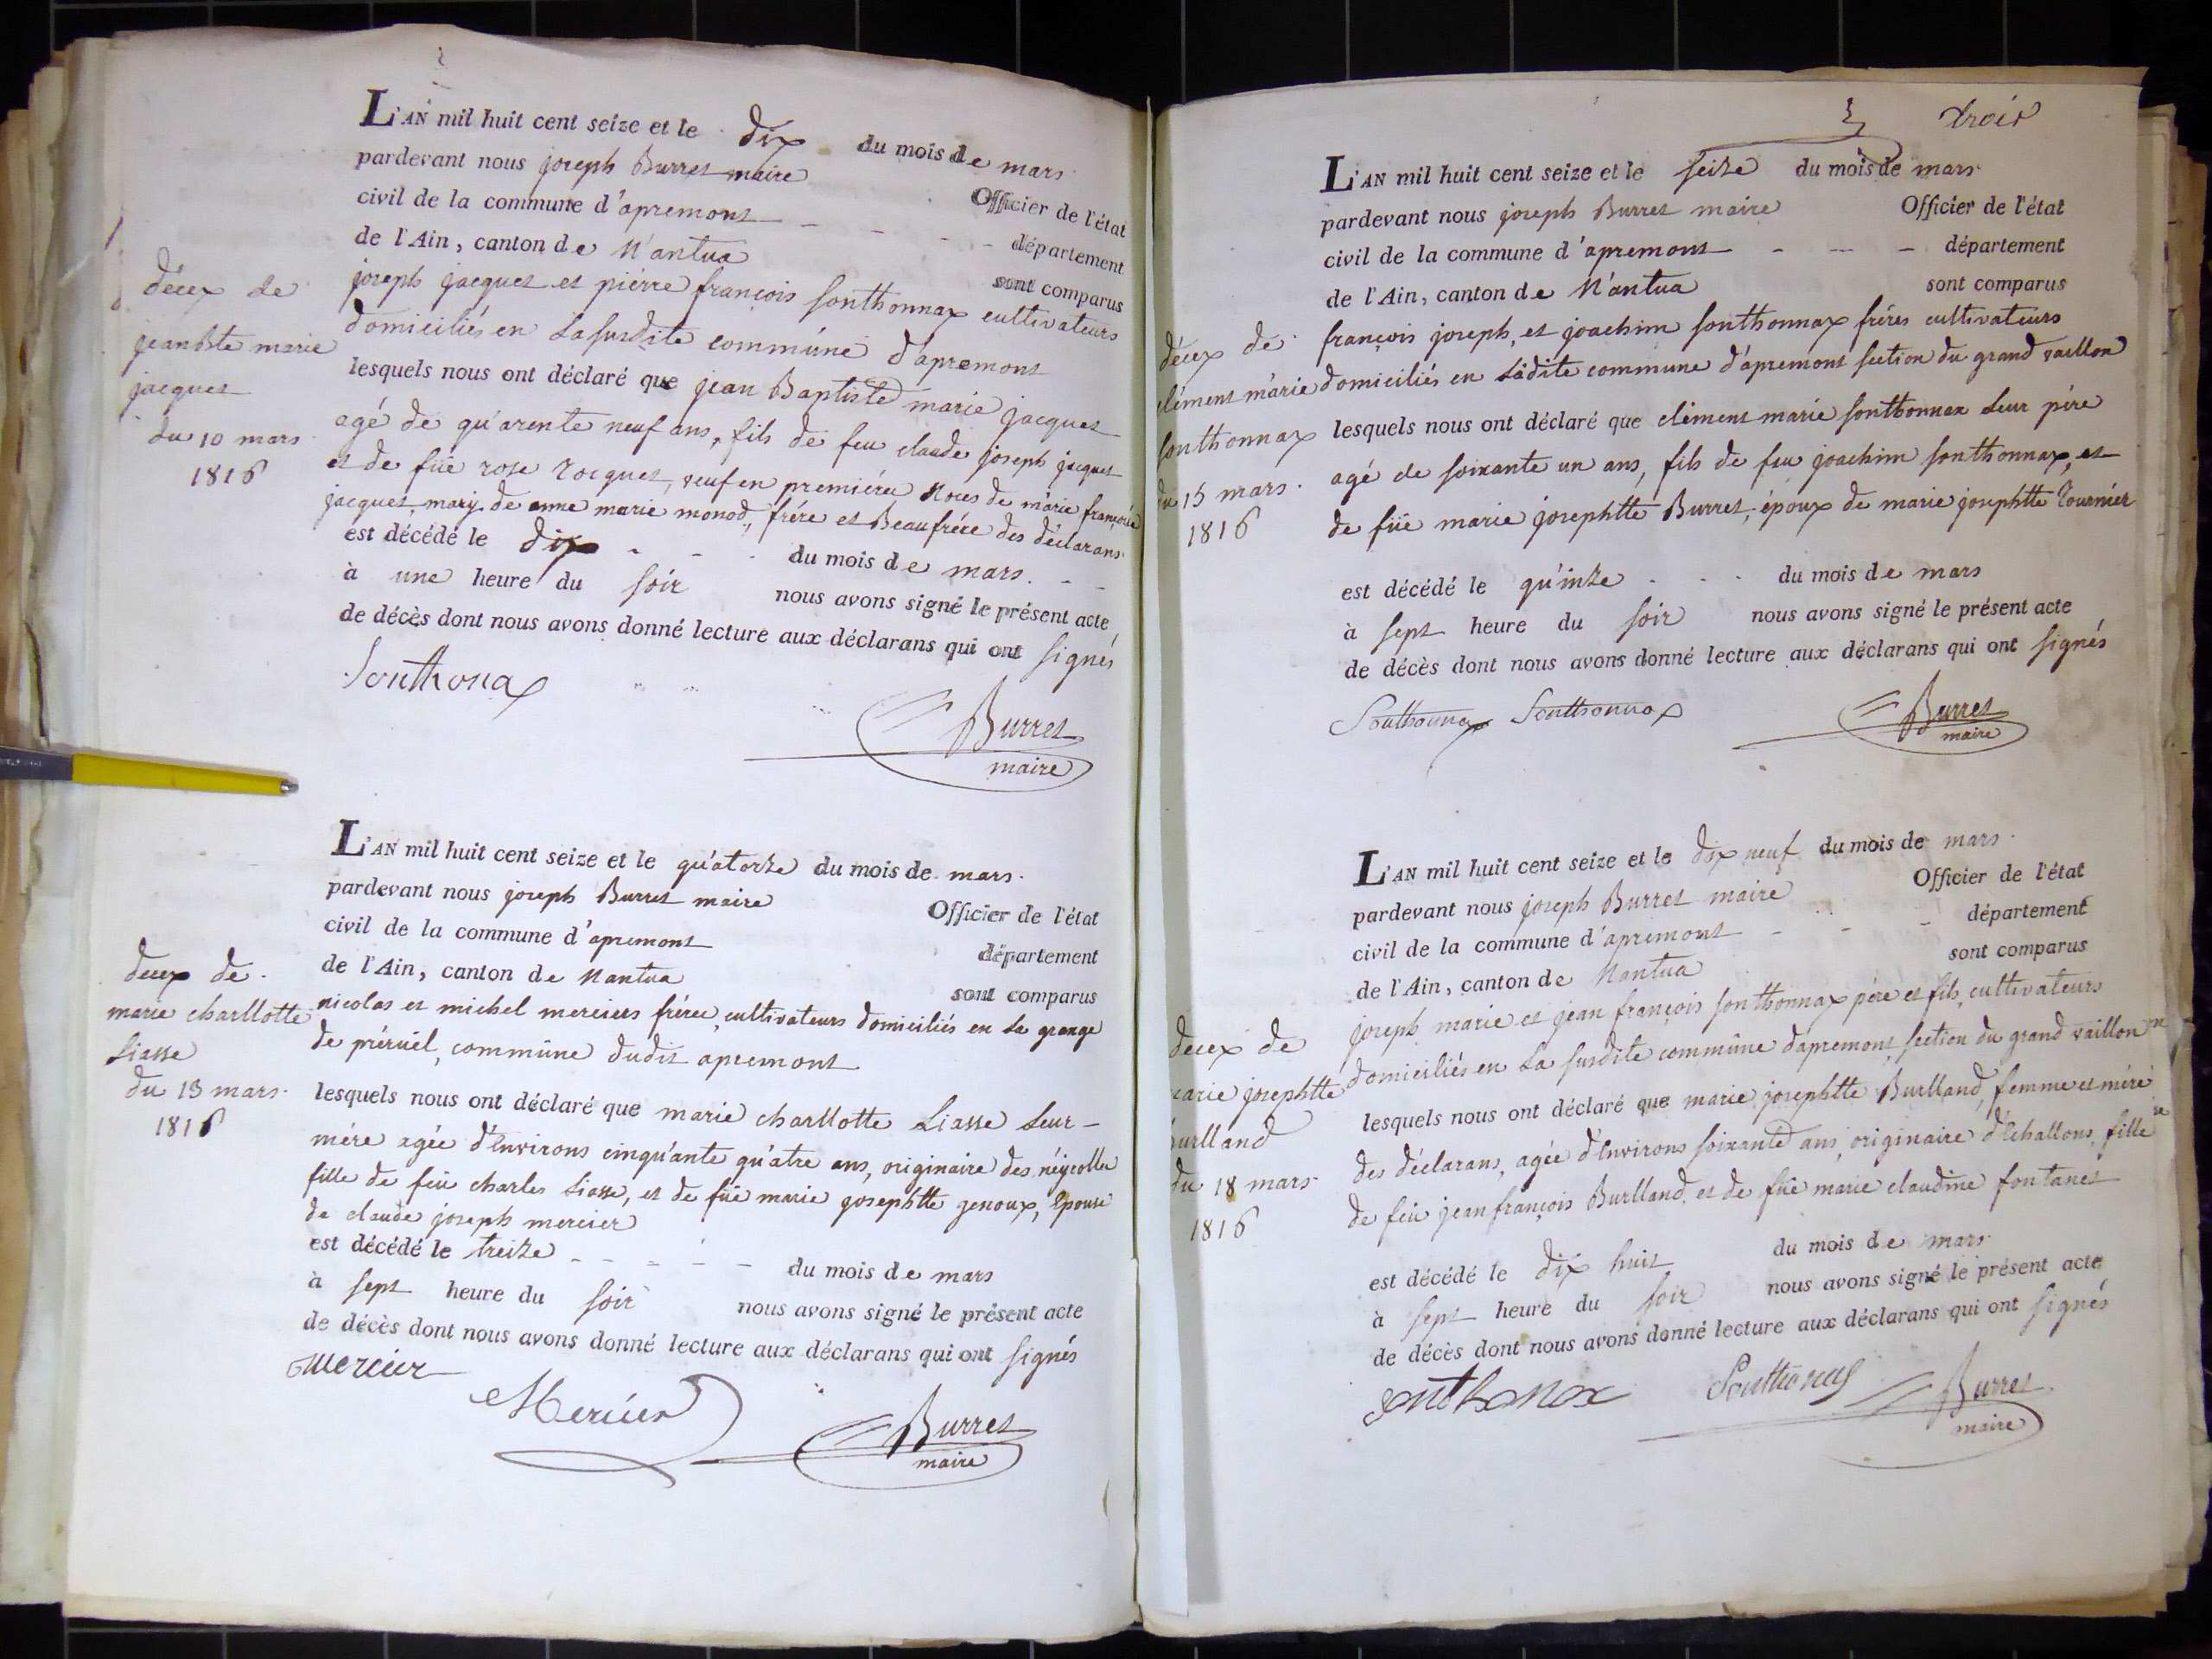 L'AN mil huit cent seize et le dix du mois de mars
pardevant nous joseph Burret maire Officier de l'état
civil de la commune d'apremont - - - - département
de l'Ain, canton de Nantua sont comparus
joseph jacquet et piérre françois sonthonnax cultivateurs
domiciliés en la susdite commúne d'apremont
lesquels nous ont déclaré que jean Baptiste marie jacquet
agé de qu'arente neuf ans, fils de feu claude joseph jacquet
et de füe rose rocquet, veuf en premiéres noces de márie françoise
jacquet, mary de anne marie monod, frére et Beaufrére des déclarans
est décédé le dix - - - du mois de mars. - -
à une heure du soir nous avons signé le présent acte
de décès dont nous avons donné lecture aux déclarans qui ont signés
Sonthonax
Burret
maire
décex de
jean Bte marie
jacquet
du 10 mars
1816
L'AN mil huit cent seize et le qu'atorze du mois de mars.
pardevant nous joseph Burret maire Officier de l'état
civil de la commune d'apremont département
de l'Ain, canton de Nantua sont comparus
nicolas et michel merciers fréres, cultivateurs domiciliés en la grange
de préruël, commúne dudit apremont
lesquels nous ont déclaré que marie charllotte Liasse leur -
mére agée d'Environs cinqu'ante qu'atre ans, originaire des néyrolles
fille de feü charles Liasse, et de füe marie josephtte genoux, Epouse
de claude joseph mercier
est décédé le treize - - - - - du mois de mars
à sept heure du soir nous avons signé le présent acte
de décès dont nous avons donné lecture aux déclarans qui ont signés
Mercier
Mercier
Burret
maire
decex de
marie charllotte
Liasse
du 13 mars.
1816
trois
L'AN mil huit cent seize et le seize du mois de mars
pardevant nous joseph Burret maire Officier de l'état
civil de la commune d'apremont - - - - département
de l'Ain, canton de Nantua sont comparus
françois joseph, et joachim sonthonnax fréres cultivateurs
domiciliés en ladite commune d'apremont section du grand vaillon
lesquels nous ont déclaré que clément marie sonthonnax leur pére
agé de soixante un ans, fils de feu joachim sonthonnax, et
de füe marie josephtte Burret, époux de marie josephtte Tournier
est décédé le qu'inze - - - du mois de mars
à sept heure du soir nous avons signé le présent acte
de décès dont nous avons donné lecture aux déclarans qui ont signés
Sonthonnax Sonthonnax
Burret
maire
décex de
clément márie
sonthonnax
du 15 mars.
1816
L'AN mil huit cent seize et le dix neuf du mois de mars.
pardevant nous joseph Burret maire Officier de l'état
civil de la commune d'apremont - - - département
de l'Ain, canton de Nantua sont comparus
joseph marie et jean françois sonthonnax pére et fils, cultivateurs
domiciliés en la susdite commúne d'apremont, section du grand vaillon
lesquels nous ont déclaré que marie josephtte Burlland, femme et mére
des déclarans, agée d'Environs soixante ans, originaire d'Echallons, fille
de feü jean françois Burlland, et de füe marie claudine fontanet
est décédé le dix huit du mois de mars
à sept heure du soir nous avons signé le présent acte
de décès dont nous avons donné lecture aux déclarans qui ont signés
Sonthonax Sonthonax
Burret
maire
decex de
marie josephtte
burlland
du 18 mars
1816